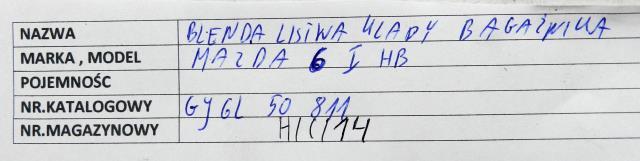 NAZWA BLENDA LISTWA KLAPY BAGAŻNIKA
MARKA , MODEL MAZDA 6 I HB
POJEMNOŚĆ
NR.KATALOGOWY GJ6L 50 811
NR.MAGAZYNOWY